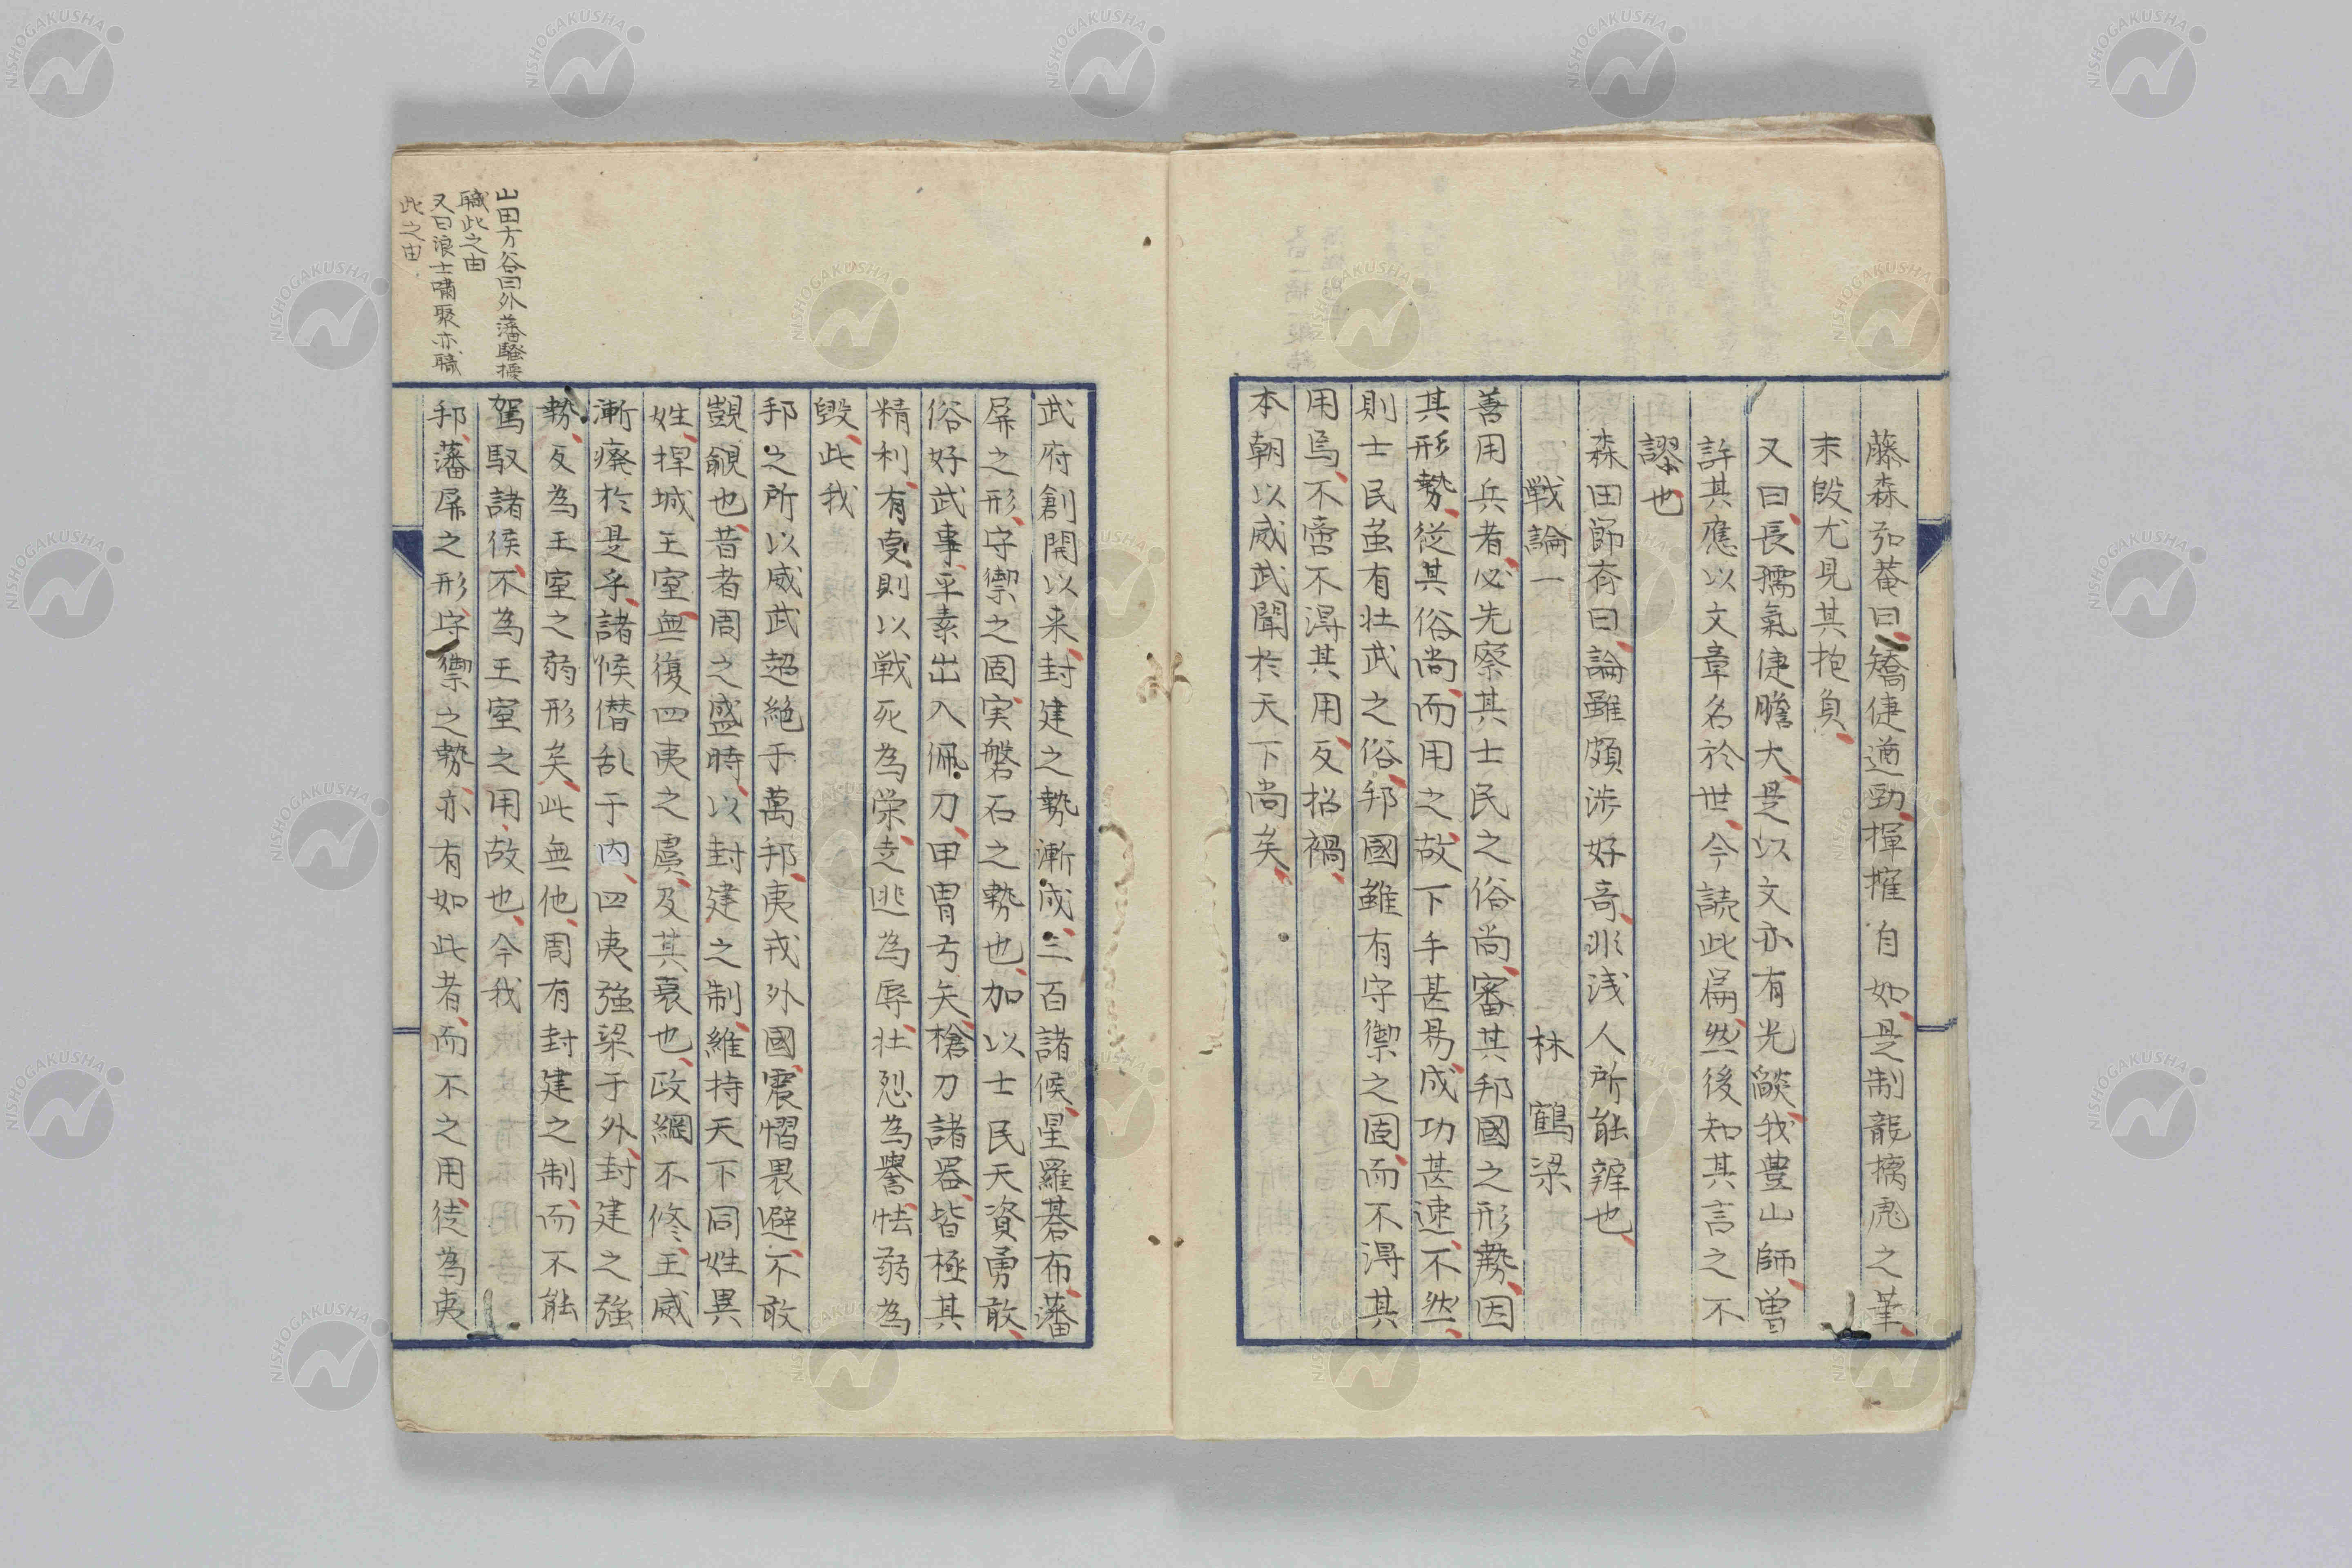 藤森弘菴曰矯健遒勁揮擢自如是制龍擒虎之筆
末段尤見其抱負
又曰長孺氣健膽大是以文亦有光燄我豊山師曽
許其應以文章名於世今読此扁然後知其言之不
謬也
森田節斎曰論雖頗渉好奇非浅人所能辨也
戦論一　林鶴梁
善用兵者必先察其士民之俗尚審其邦國之形勢因
其形勢從其俗尚而用之故下手甚易成功甚速不然
則士民虽有壮武之俗邦國雖有守禦之固而不得其
用焉不啻不得其用反招禍
本朝以威武聞於天下尚矣
武府創開以来封建之勢漸成三百諸侯星羅碁布藩
屏之形守禦之固実磐石之勢也加以士民天資勇敢
俗好武事平素出入佩刀甲冑弓矢槍刀諸器皆極其
精利有叓則以戦死為栄走逃為辱壮烈為譽怯弱為
毀此我
邦之所以威武超絶于萬邦夷戎外國震慴畏避不敢
覬覦也昔者周之盛時以封建之制維持天下同姓異
姓捍城王室無復四夷之虞及其衰也政綱不修王威
漸廃於是乎諸侯僭乱于内四夷強梁于外封建之強
勢反為王室之弱形矣此無他周有封建之制而不能
駕馭諸侯不為王室之用故也今我
邦藩屏之形守禦之勢亦有如此者而不之用徒為夷
山田方谷曰外藩騒擾
職此之由
又曰浪士嘯聚亦職
此之由
NISHOGAKUSHA